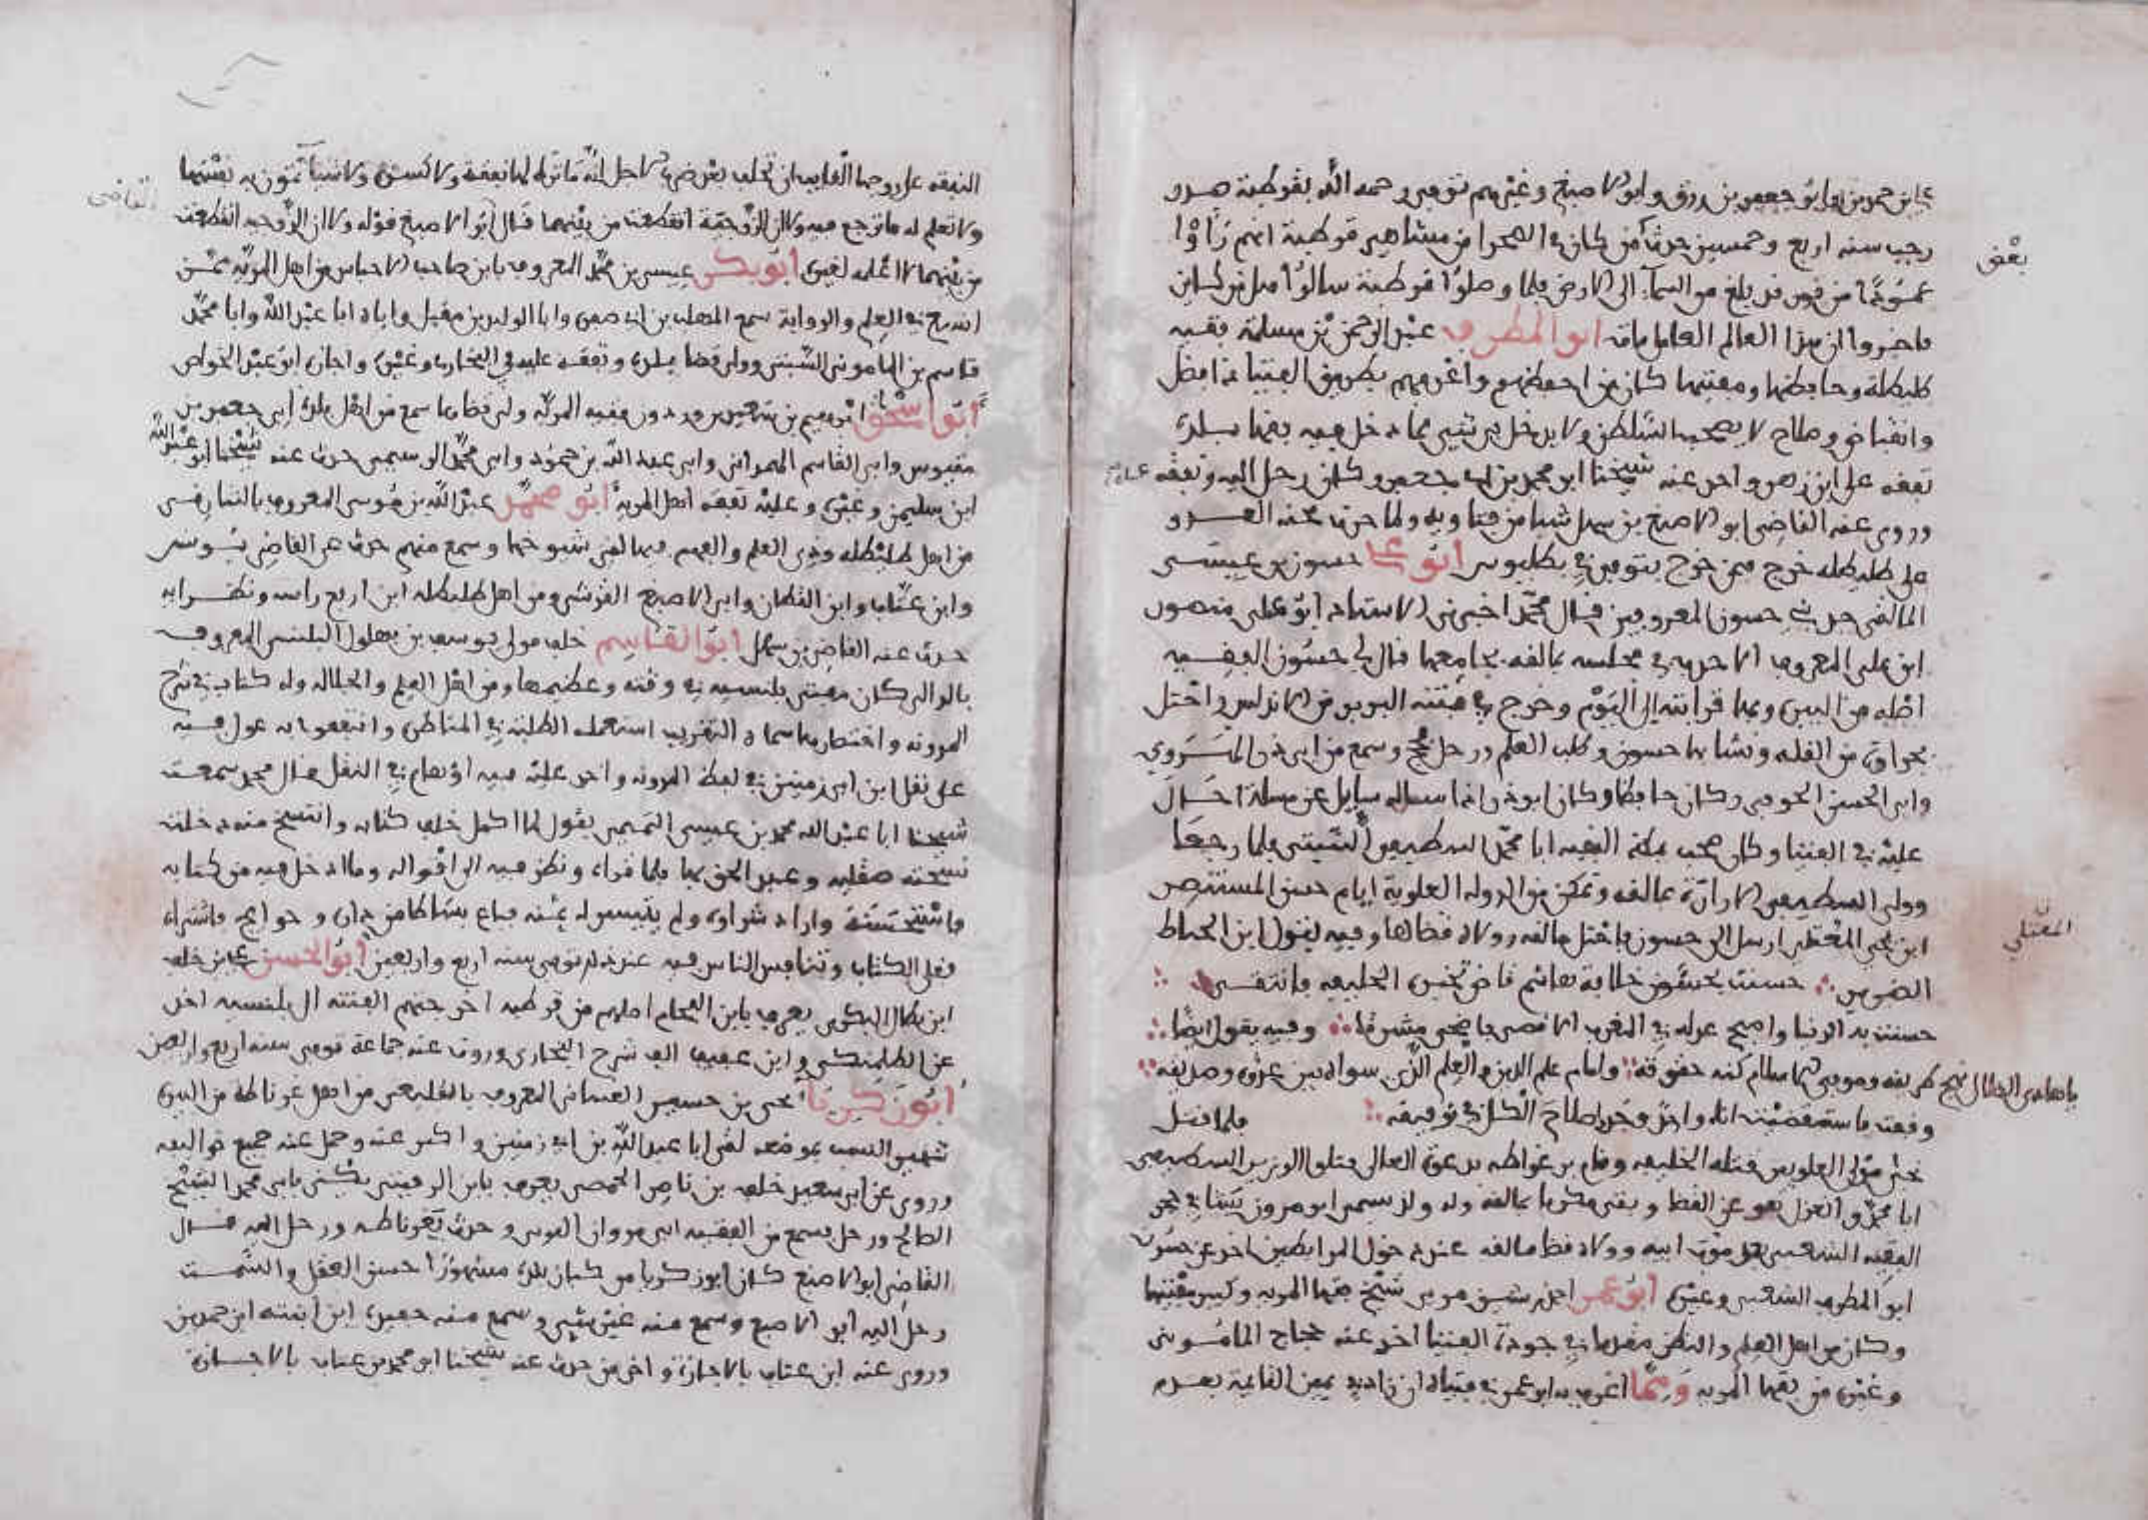 علي بن حمدين وابو جعفر بن رزق وابو الاصبغ وغيرهم توفي رحمه الله بقرطبة صدر
رجب سنة اربع وخمسين حدث من كان في الصحرا من مشاهير قرطبة انهم رأوا
بعض
عمودا من نور قد بلغ من السماء الى الارض فلما وصلوا قرطبة سالوا
فاخبروا ان هذا العالم العامل مات ابو المطرف عبد الرحمن بن مسلمة فقيه
طليطلة وحافظها ومفتيها كان من احفظهم واعرفهم بطريق الفتيا مع فضل
وانقباض وصلاح لا يصحب السلطن ولا يدخل في شيء مما دخل فيه فقها بلده
تفقه على ابن زهر واخذ عنه شيخنا ابو محمد بن ابي جعفر وكان رحل اليه وتفقه عنده
وروى عنه القاضي ابو الاصبغ بن سهل شيا من فتاويه ولما حدث محنة العدو
على طليطلة خرج فيمن خرج فتوفي في بطليوس ابو علي حسون بن عيسى
المالقي حسون المعروفين قال محمد اخبرني الاستاذ ابو علي منصور
ابن علي المعروف الاحدب في مجلسه بمالقة بجامعها قال لي حسون الفقيه
اصله من البيرة وبها قرابته الى اليوم وخرج في فتنة البربر من الاندلس واحتل
بجراوة من القلعة ونشا بها حسون وطلب العلم ورحل فحج وسمع من ابي ذر الهروي
وابي الحسن الحوفي وكان حافظا وكان ابو ذر اذا ساله سايل عن مسلة احال
عليه في الفتيا وكان صحب بمكة الفقيه ابا محمد السطيفي السبتي فلما رجعا
وولي السطيفي الادارة بمالقة وتمكن من الدولة العلوية ايام حسن المستنصر
ابن يحيى المعتلي ارسل الى حسون فاحتل مالقة وولاه قضاها وفيه يقول ابن الحناط
المعتلي
الضرير حسنت بحسون خلافة هاشم قاض تخيره الخليفة فانتقى
حسنت به الدنيا واصبح عدله في المغرب الاقصى فاضحى مشرقا وفيه يقول ايضا
يا هادي الضلال نهج طريقه وموفي الاسلام كنه حقوقه وامام علم الدين والعلم الذي سواه بين عدوه وصديقه
وفقت فاستقضيت اناه واحدا وجد اصلاح الكل في توفيقه فلما قتل
نجا مولى العلويين فتلة الخليفة وقام بن غواطة بدعوة العالي قتلوا الوزير السطيفي
ابا محمد واعتزل هو عن القضا وبقي مكرما بمالقة وله ولد يسمى ابو مروان يكنا في حجر
الفقيه الشعبي بعد موت ابيه وولاه قضا مالقة عند دخول المرابطين اخذ عن حسون
ابو المطرف الشعبي وغيره ابو عمر احمد بن رشيق من شيخ فقها المرية وكبير مفتيها
وكان من اهل العلم والنظر مقدما في جودة الفتيا اخذ عنه حجاج المامومي
وغيره من فقها المرية ومما اغرب به ابو عمر في فتياه ان زاد في يمين القايمة بعدم
النفقة على زوجها الغايب ان تحلف بعرض الاجل انه ما ترك لها نفقة ولا كسوة ولا شيا تمون به نفسها
ولا تعلم له ما ترجع فيه ولا ان الزوجية انقطعت من بينهما قال ابو الاصبغ قوله ولا ان الزوجية انقطعت
القاضي
من بينهما لا اعلمه لغيره ابو بكر عيسى بن محمد المعروف بابن صاحب الاحباس من اهل المرية ممن
اتسع في العلم والرواية سمع المهلب بن ابي صفرة وابا الوليد بن مقبل واباه ابا عبد الله وابا محمد
قاسم بن الماموني السبتي وولي قضا بلده وتفقه عليه في البخاري وغيره واجازه ابو عمر الخواص
ابو اسحق ابرهيم بن سعيد بن وردون فقيه المرية ولي قضاها سمع من اهل بلده ابي جعفر بن
مغيوس وابي القاسم المهراني وابي عبد الله بن حمود وابي محمد الرسمي حدث عنه شيخنا ابو عبد الله
ابن سليمن وغيره وعليه تفقه اهل المرية ابو محمد عبد الله بن موسى المعروف بالشارقي
من اهل طليطلة وذوي العلم والفهم فيها لقي شيوخها وسمع منهم حدث عن القاضي يونس
وابن عتاب وابن القطان وابي الاصبغ القرشي ومن اهل طليطلة ابن ارفع راسه ونظرايه
حدث عنه القاضي بن سهل ابو القاسم خلف مولى يوسف بن بهلول البلنسي المعروف
بالبريلي كان مفتي بلنسية في وقته وعظيمها ومن اهل العلم والجلالة وله كتاب في شرح
المدونة واختصارها سماه التقريب استعمله الطلبة في المناظرة وانتفعوا به عول فيه
على نقل ابن ابي زمنين في لفظ المدونة واخذ عليه فيه اوهام في النقل قال محمد سمعت
شيخنا ابا عبد الله محمد بن عيسى التميمي يقول لما اكمل خلف كتابه وانتسخ منه دخلت
نسخته صقلية وعبد الحق بها فلما قراه ونظر فيه الى اقواله وما ادخل فيه من كتابه
فاستحسنه واراد شراه ولم يتيسر له ثمنه فباع بساطا من داره وحوايج واشتراه
فغلى الكتاب وتنافس الناس فيه عند ذلك توفي سنة اربع واربعين ابو الحسن علي بن خلف
ابن بطال البكري يعرف بابن اللجام اصلهم من قرطبة اخرجتهم الفتنة الى بلنسية اخذ
عن الطلمنكي وابن عفيف الف شرح البخاري وروت عنه جماعة توفي سنة اربع واربعين
ابو زكريا يحيى بن حسين الغساني المعروف بالقليعي من اهل غرناطة من البيرة
شهير البيت بموضعه لقي ابا عبد الله بن ابي زمنين واكثر عنه وحمل عنه جميع تواليفه
وروى عن ابي سعيد خلف بن ناصر الحمصي يعرف بابن الرفيتي يكنى بابي محمد الشيخ
الصالح ورحل فسمع من الفقيه ابي مروان البوني وحدث بغرناطة ورحل اليه قال
القاضي ابو الاصبغ كان ابو زكريا من كبار بلده مشهورا حسن العقل والسمت
رحل اليه ابو الاصبغ وسمع منه غير شيء وسمع منه حفيده ابن ابنته ابن حمدين
وروى عنه ابن عتاب بالاجازة واخر من حدث عنه شيخنا ابو محمد بن عتاب بالاجازة